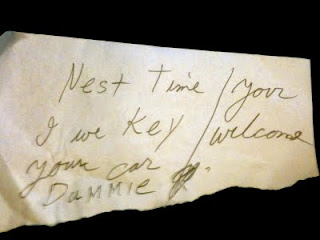 Nest Time
I we Key
your car
DaMMIE
your
welcome